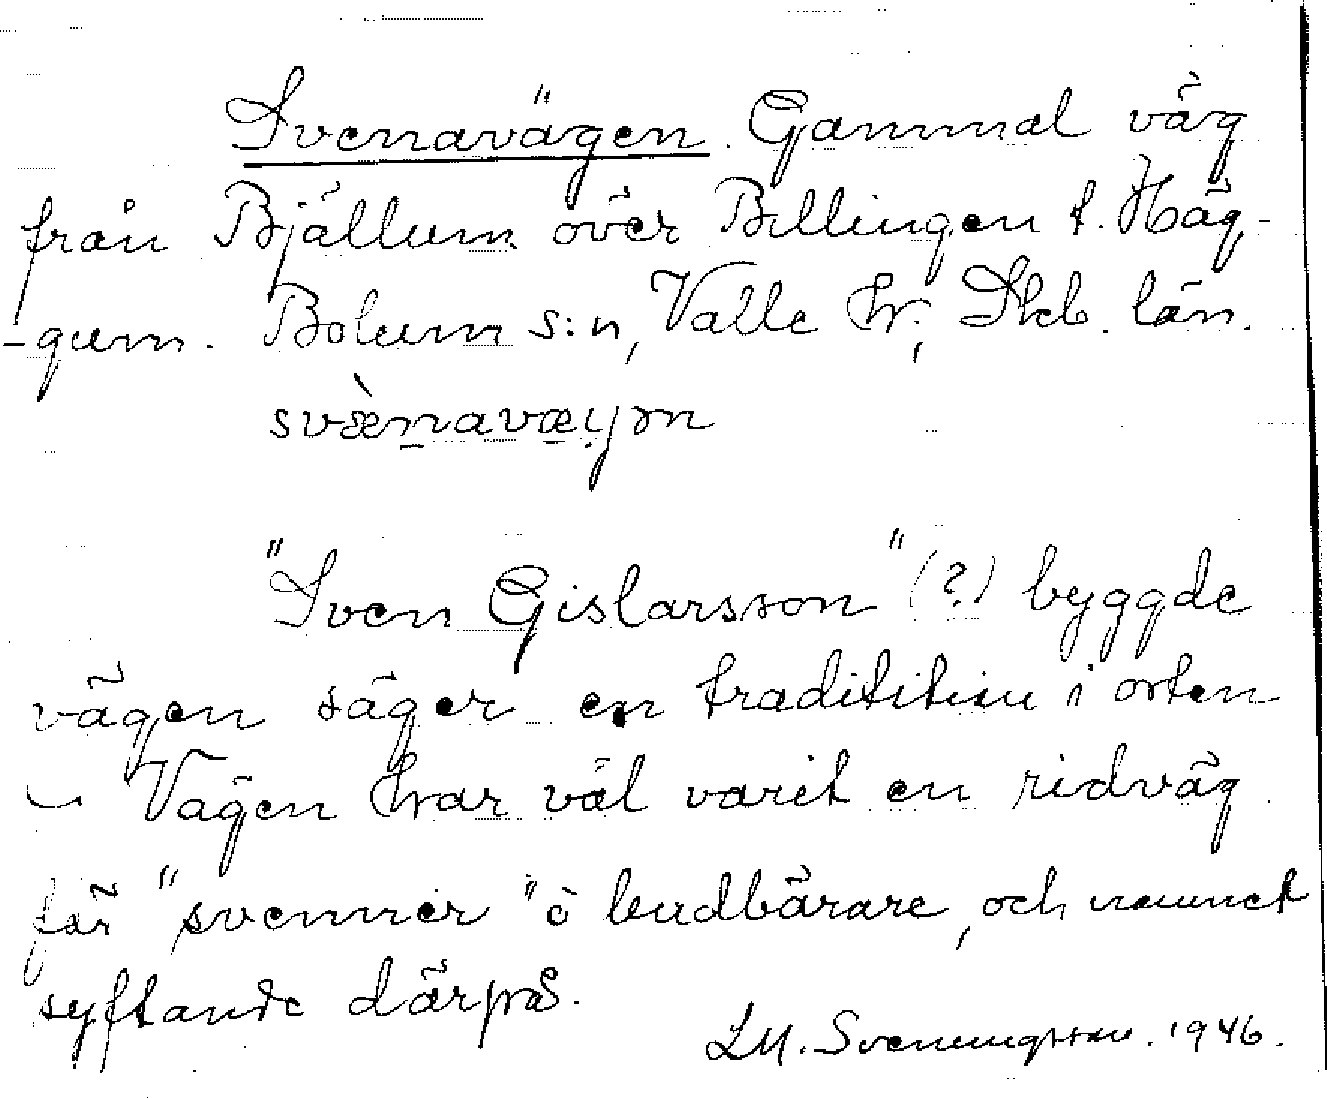 Svenavägen. Gammal väg
från Bjällum över Billingen t. Häg-
-gum. Bolum s:n, Valle hr; Skb. län.
"Sven Gislarsson" (?) byggde
vägen säger en tradititiou i orten
– Vägen har väl varit en ridväg
för "svenner" o budbärare, och namnet
syftande därpå.
LM. Svenungsson. 1946.